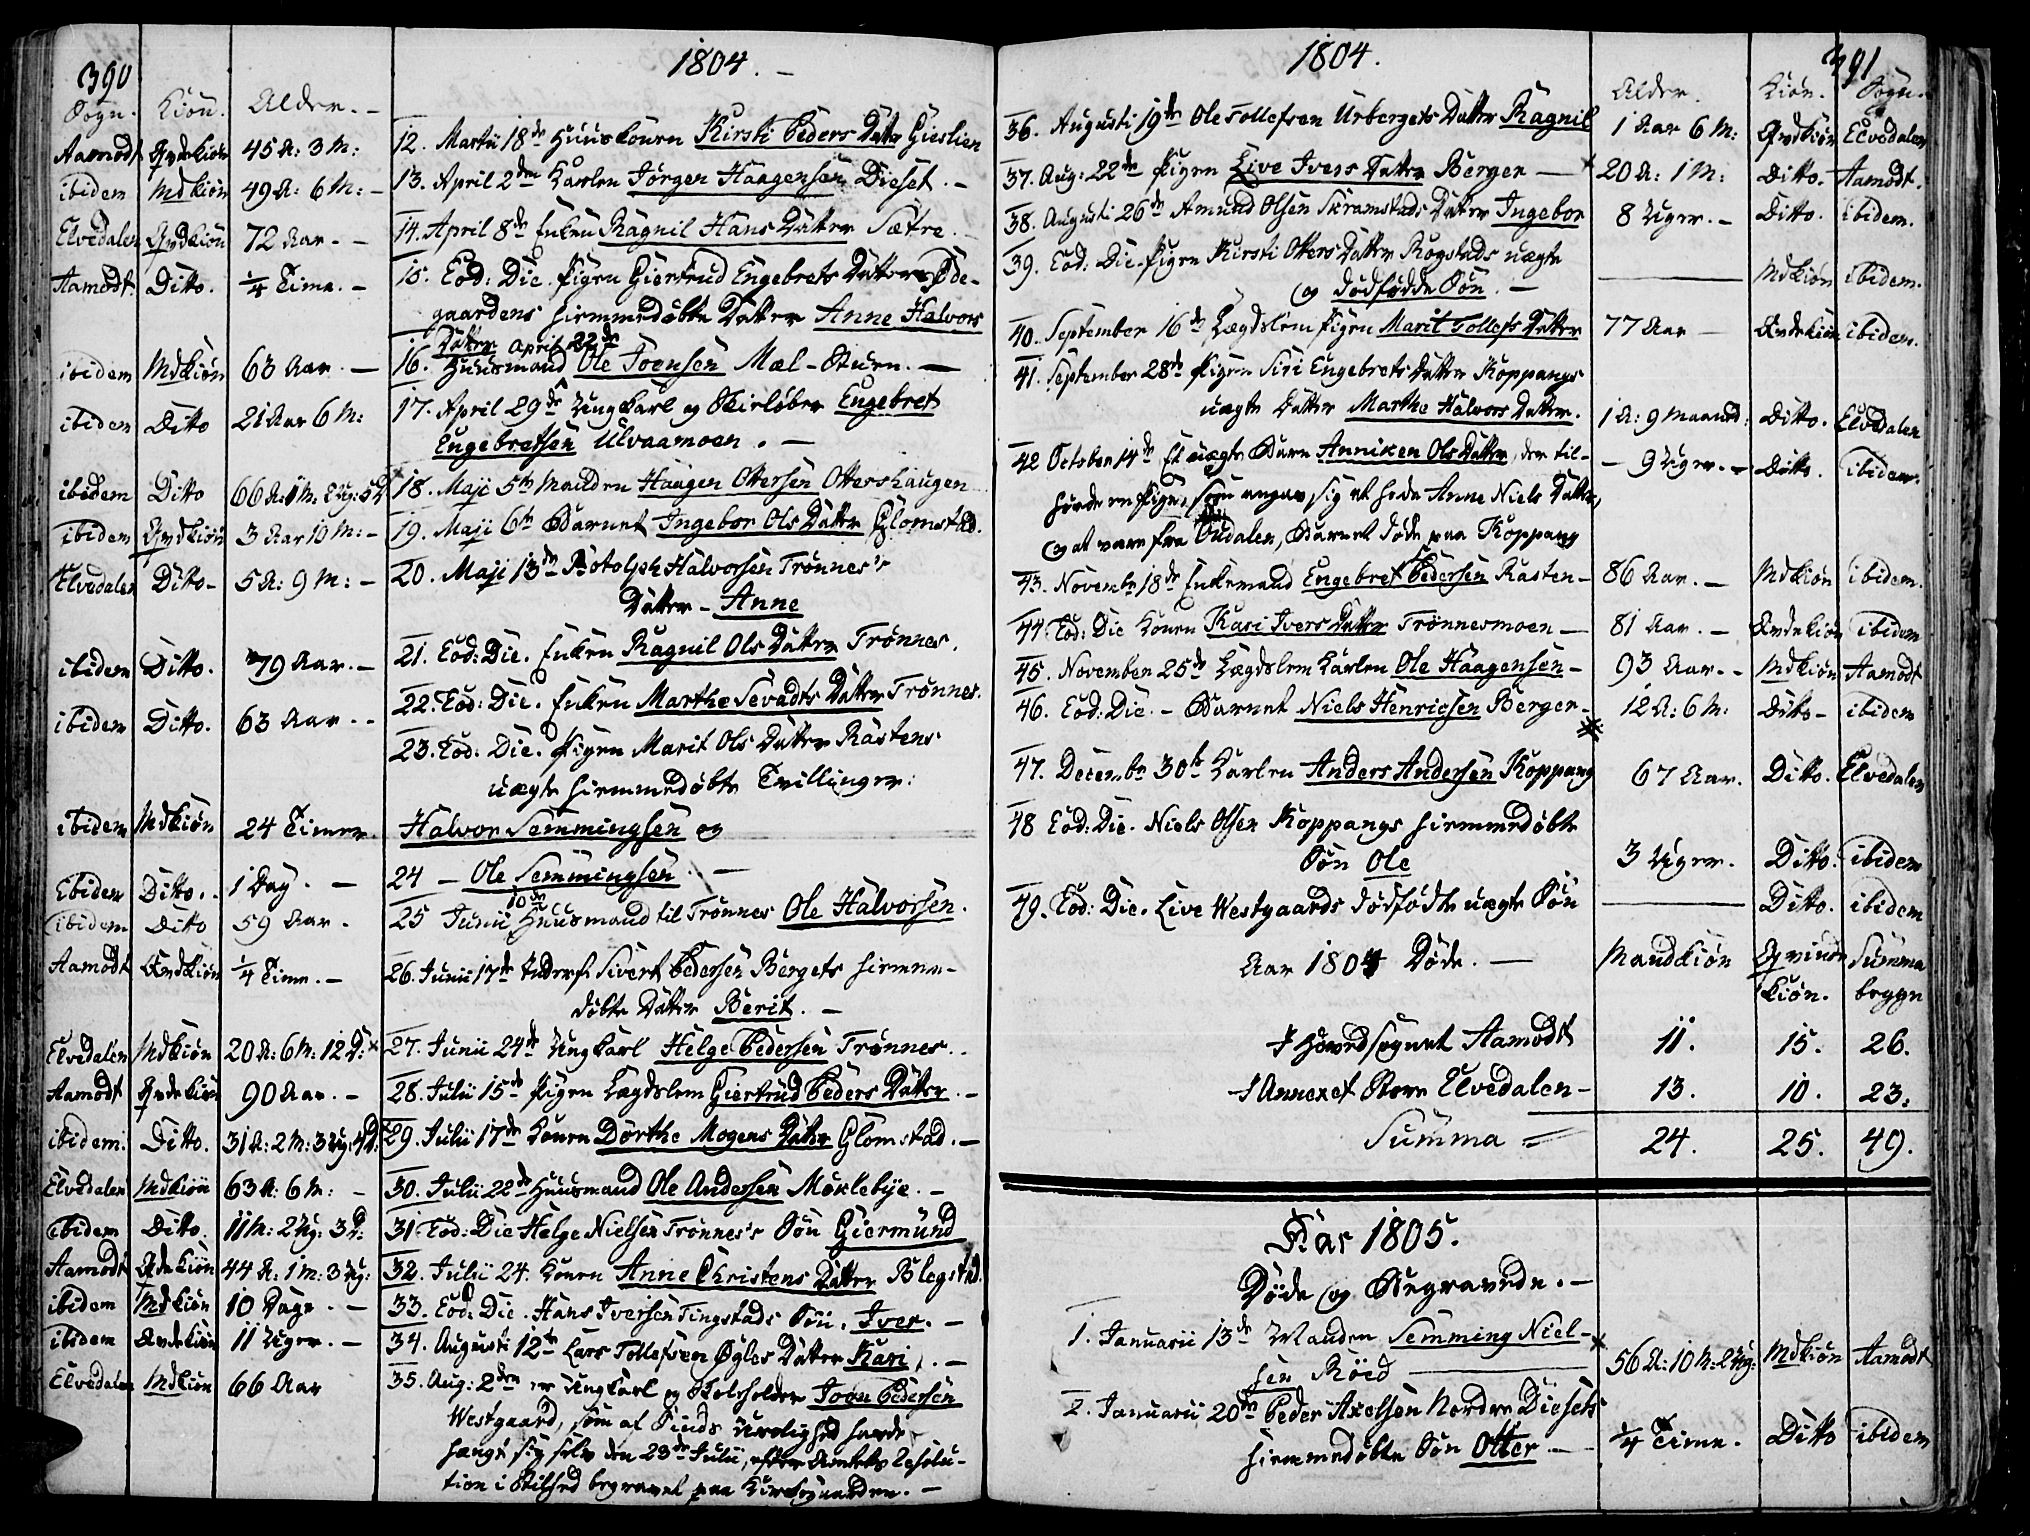 390
1804.
Sogn. Kiön. Alder.
Aamodt Qvdekiön 45 A: 3 M: 12. Martii 18de Huuskonen Kirsti Peders Datter Gieslien
ibidem Mdkiön 49 A: 6 M: 13. April 2den Karlen Jörgen Haagensen Dieset.
Elvedalen Qvdkiön 72 Aar. 14. April 8de Enken Ragnil Hans Datter Sætre.
Aamodt. Ditto. 1/4 Time. 15. Eod: Die. Pigen Giertrud Engebrets Datter Öde-
gaardens hiemmedöbte Datter Anne Halvors
Datter April 22de
ibidem Mdkiön 63 Aar. 16. Huusmand Ole Joensen Mæl-
ibidem Ditto 21 Aar 6 M: 17. April 29de Ungkarl og Skielöber Engebret
Engebretsen Ulvaamoen.
ibidem Ditto 66 A: 1 M: 2 Ug: 5 D 18. Maji 5te Manden Haagen Ottersen Ottershaugen
ibidem Qvdkiön 3 Aar 10 M: 19. Maji 6te Barnet Ingebor Ols Datter Glomstad.
Elvedalen Ditto 5 A: 9 M: 20. Maji 13de Botolph Halvorsen Trönnes's
Datter - Anne
ibidem Ditto. 79 Aar. 21. Eod: Die. Enken Ragnil Ols Datter Trönnes.
ibidem Ditto. 63 Aar. 22. Eod: Die. Enken Marthe Sevadts Datter Trönnes.
23. Eod: Die. Pigen Marit Ols Datter Rastens
uægte hiemmedöbte Tvillinger:
ibidem Mdkiön 24 Timer Halvor Semmingsen og
Ebidem Ditto. 1 Dag. 24 - Ole Semmingsen.
10de
ibidem Ditto 59 Aar. 25 Junii Huusmand til Trönnes Ole Halvorsen.
Aamodt Qvdkiön 1/4 Time. 26. Junii 17de Sivert Pedersen Bergets hiemme-
döbte Datter Berit.
Elvedalen Mdkiön 20 A: 6 M: 12 D: 27. Junii 24de Ungkarl Helge Pedersen Trönnes.
Aamodt Qvdekiön 90 Aar. 28. Julii 15de Pigen Lægdslem Giertrud Peders Datter.
ibidem: Ditto. 31 A: 2 M: 3 Ug: 4 D: 29. Julii 17de Konen Dorthe Mogens Datter Glomstad.
Elvedalen Mdkiön 63 A: 6 M: 30. Julii 22de Huusmand Ole Andersen Möklebye.
ibidem Ditto. 11 M: 2 Ug: 3 D: 31. Eod: Die Helge Nielsen Trönnes's Sön Giermund
Aamodt Qvdekiön 44 A: 1 M: 3 Ug: 32. Julii 24. Konen Anne Christens Datter Blegstad.
ibidem Mdkiön 10 Dage. 33. Eod: Die. Hans Iversen Tingstads Sön, Iver.
ibidem Qvdekiön 11 Uger. 34. Augusti 12te Lars Tollefsen Ögles Datter Kari.
Elvedalen Mdkiön 66 Aar 35. Aug: 2den er Ungkarl og Skoleholder Joen Pedersen
Westgaard, som af Sinds Urolighed havde
hængt sig selv den 23de Julii, efter Amtets Resolu-
tion i Stilhed begravet paa Kirkegaarden.
1804.
391
Alder. Kiön. Sogn.
36. Augusti 19de Ole Tollefsen Urbergets Datter Ragnil 1 Aar 6 M: Qvdkiön Elvedalen
37. Aug: 22de Pigen Live Ivers Datter Berger 20 A: 1 M: Ditto. Aamodt.
38. Augusti 26de Amund Olsen Skramstads Datter Ingebor 8 Uger. Ditto. ibidem.
39. Eod: Die. Pigen Kirsti Otters Datter Rogstads uægte
og dödfödde Sön. Mdkiön ibidem.
40. September 16de Lægdslem Pigen Marit Tollefs Datter 77 Aar Qvdekiön ibidem.
41. September 28de Pigen Siri Engebrets Datter Koppangs
uægte Datter Marthe Halvors Datter. 1 A: 9 Maaned: Ditto. Elvedalen
42 October 14de Et uægte Barn Anniken Ols Datter, der til- 9 Uger. Ditto. ibidem.
hörde en Pige, som angav sig at hede Anne Niels Datter,
og at være fra Oudalen, Barnet döde paa Koppang
43. Novembr 18de Enkemand Engebret Pedersen Rasten 86 Aar. Mdkiön ibidem.
44 Eod: Die Konen Kari Ivers Datter Trönnesmoen 81 Aar. Qvdekiön ibidem
45. November 25de Lægdslem Karlen Ole Haagensen 93 Aar. Mdkiön Aamodt
46. Eod: Die. Barnet Niels Henricsen Berger 12 A: 6 M: Ditto ibidem
47. Decembr 30te Karlen Anders Andersen Koppang 67 Aar. Ditto. Elvedalen
48 Eod: Die. Niels Olsen Koppangs hiemmedöbte
Sön Ole 3 Uger. Ditto. ibidem
49. Eod: Die. Live Westgaards dödfödte uægte Sön Ditto. ibidem
Aar 1804 Döde. Mandkiön Qvinde kiön. Summa begge
I Hovedsognet Aamodt 11. 15. 26.
I Annexet Store Elvedalen 13. 10. 23.
Summa 24. 25. 49.
Aar 1805.
Döde og Begravede.
1. Januarii 13de Manden Semming Niel-
sen Röed 56 A: 10 M: 2 Ug: Mdkiön Aamodt
2. Januarii 20de Peder Axelsen Nordre Diesets
hiemmedöbte Sön Otter 1/4 Time. Ditto ibidem